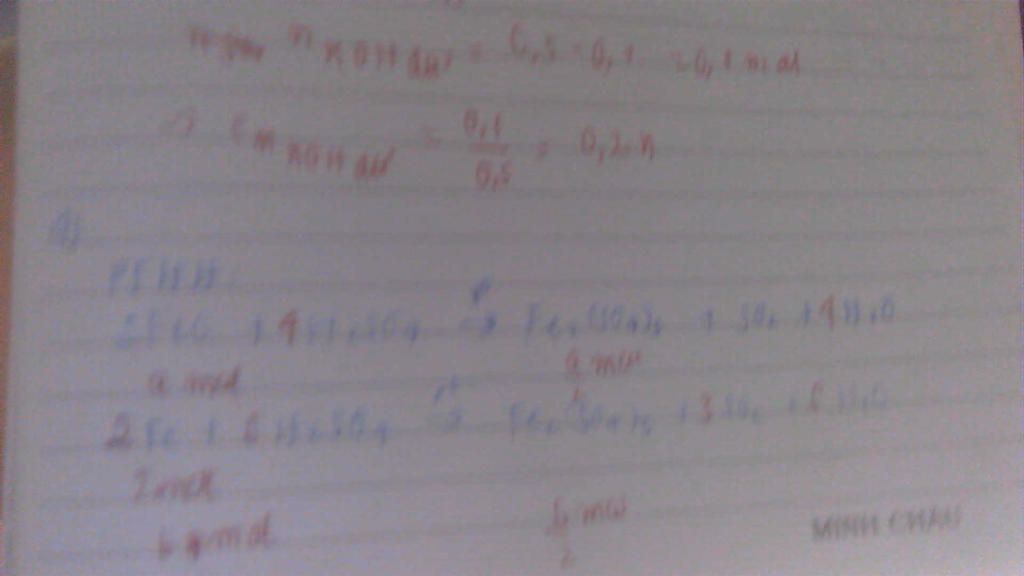 n KOH dư = 0,5 - 0,1 = 0,1 mol
=> CM KOH dư = 0,1 / 0,5 = 0,2 M
4)
PTHH
2FeO + 4H2SO4 t° → Fe2(SO4)3 + SO2 + 4H2O
a mol a/2 mol
2Fe + 6H2SO4 t° → Fe2(SO4)3 + 3SO2 + 6H2O
2 mol
b mol b/2 mol
MINH CHAU